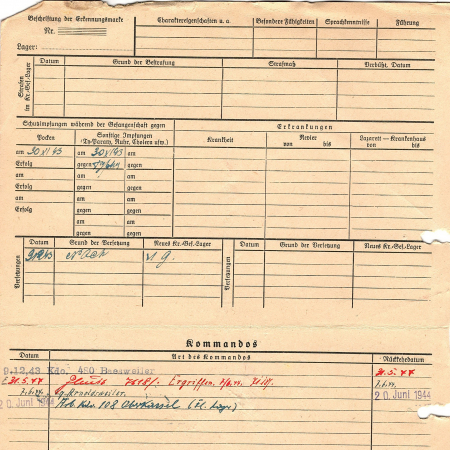 Beschriftung der Erkennungsmarke
Nr.
Lager:
Charaktereigenschaften u. a.
Besondere Fähigkeiten
Sprachkenntnisse
Führung
Strafen im Kr.-Gef.-Lager
Datum
Grund der Bestrafung
Strafmaß
Verbüßt, Datum
Schutzimpfungen während der Gefangenschaft gegen
Erkrankungen
Pocken
Sonstige Impfungen
(Ty-Paraty, Ruhr, Cholera usw.)
Krankheit
Revier
von bis
Lazarett – Krankenhaus
von bis
am 30 XI 43 am 30 XI 43 am
Erfolg gegen gegen
am am am
Erfolg gegen gegen
am am am
Erfolg gegen gegen
am am
gegen gegen
Versetzungen
Datum
Grund der Versetzung
Neues Kr.-Gef.-Lager
Versetzungen
Datum
Grund der Versetzung
Neues Kr.-Gef.-Lager
VI G.
Kommandos
Datum
Art des Kommandos
Rückkehrdatum
9.12.43 Kdo. 490 Baesweiler 31.5.44
31.5.44 Ergriffen
Arnoldsweiler
20. Juni 1944 Kdo. 108 Oberkassel 20. Juni 1944